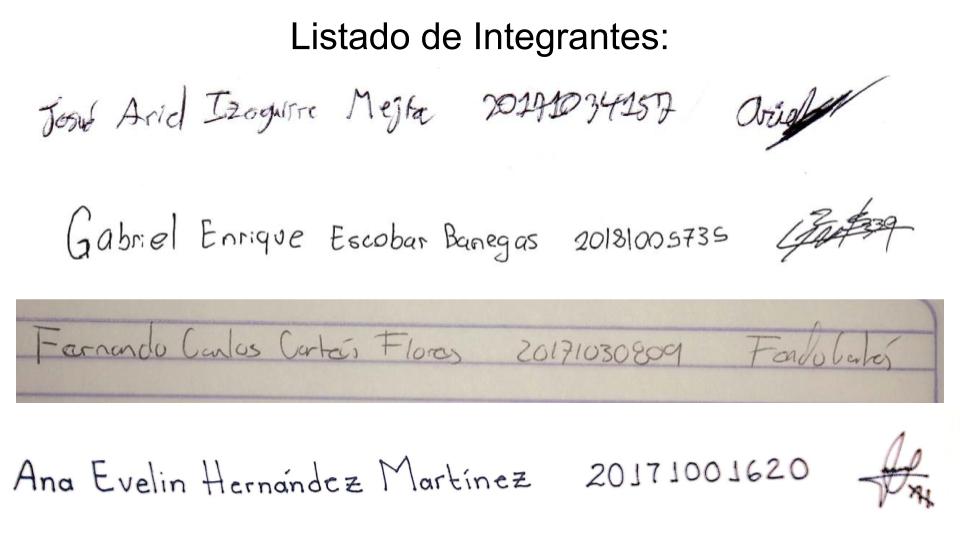 Listado de Integrantes:
Josué Ariel Izaguirre Mejía 20171034157 Ariel
Gabriel Enrique Escobar Banegas 20181005735
Fernando Carlos Cortés Flores 20171030809
Ana Evelin Hernández Martínez 20171001620